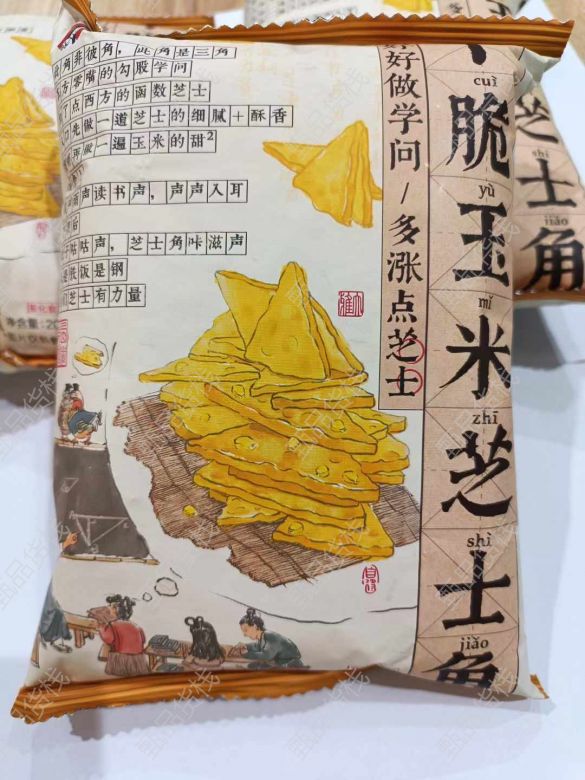 角非彼角，此角是三角
方零嘴的勾股学问
点西方的函数芝士
先做一道芝士的细腻+酥香
做一遍玉米的甜²
雨声读书声，声声入耳
咕声，芝士角咔滋声
是铁饭是钢
芝士有力量
好做学问/多涨点芝士
cuì
脆
yù
玉
mǐ
米
zhī
芝
shì
士
jiǎo
角
芝
shì
士
jiǎo
角
净含量：20